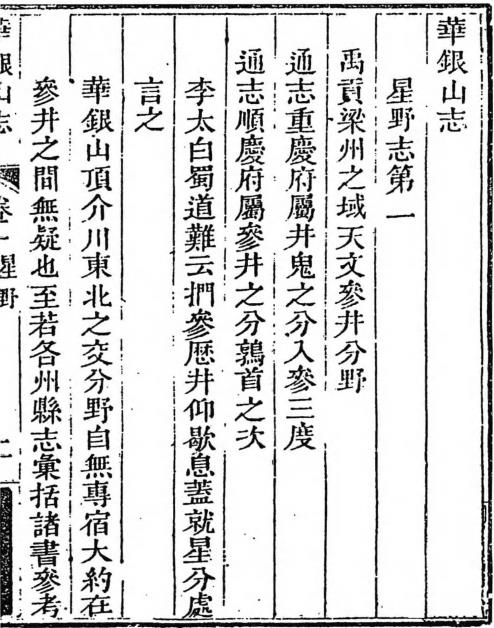 華銀山志
星野志第一
禹貢梁州之域天文參井分野
通志重慶府屬井鬼之分入參三度
通志順慶府屬參井之分鶉首之次
李太白蜀道難云捫參歷井仰歇息蓋就星分處
言之
華銀山頂介川東北之交分野自無專宿大約在
參井之間無疑也至若各州縣志彙括諸書參考
華銀山志 卷一星野